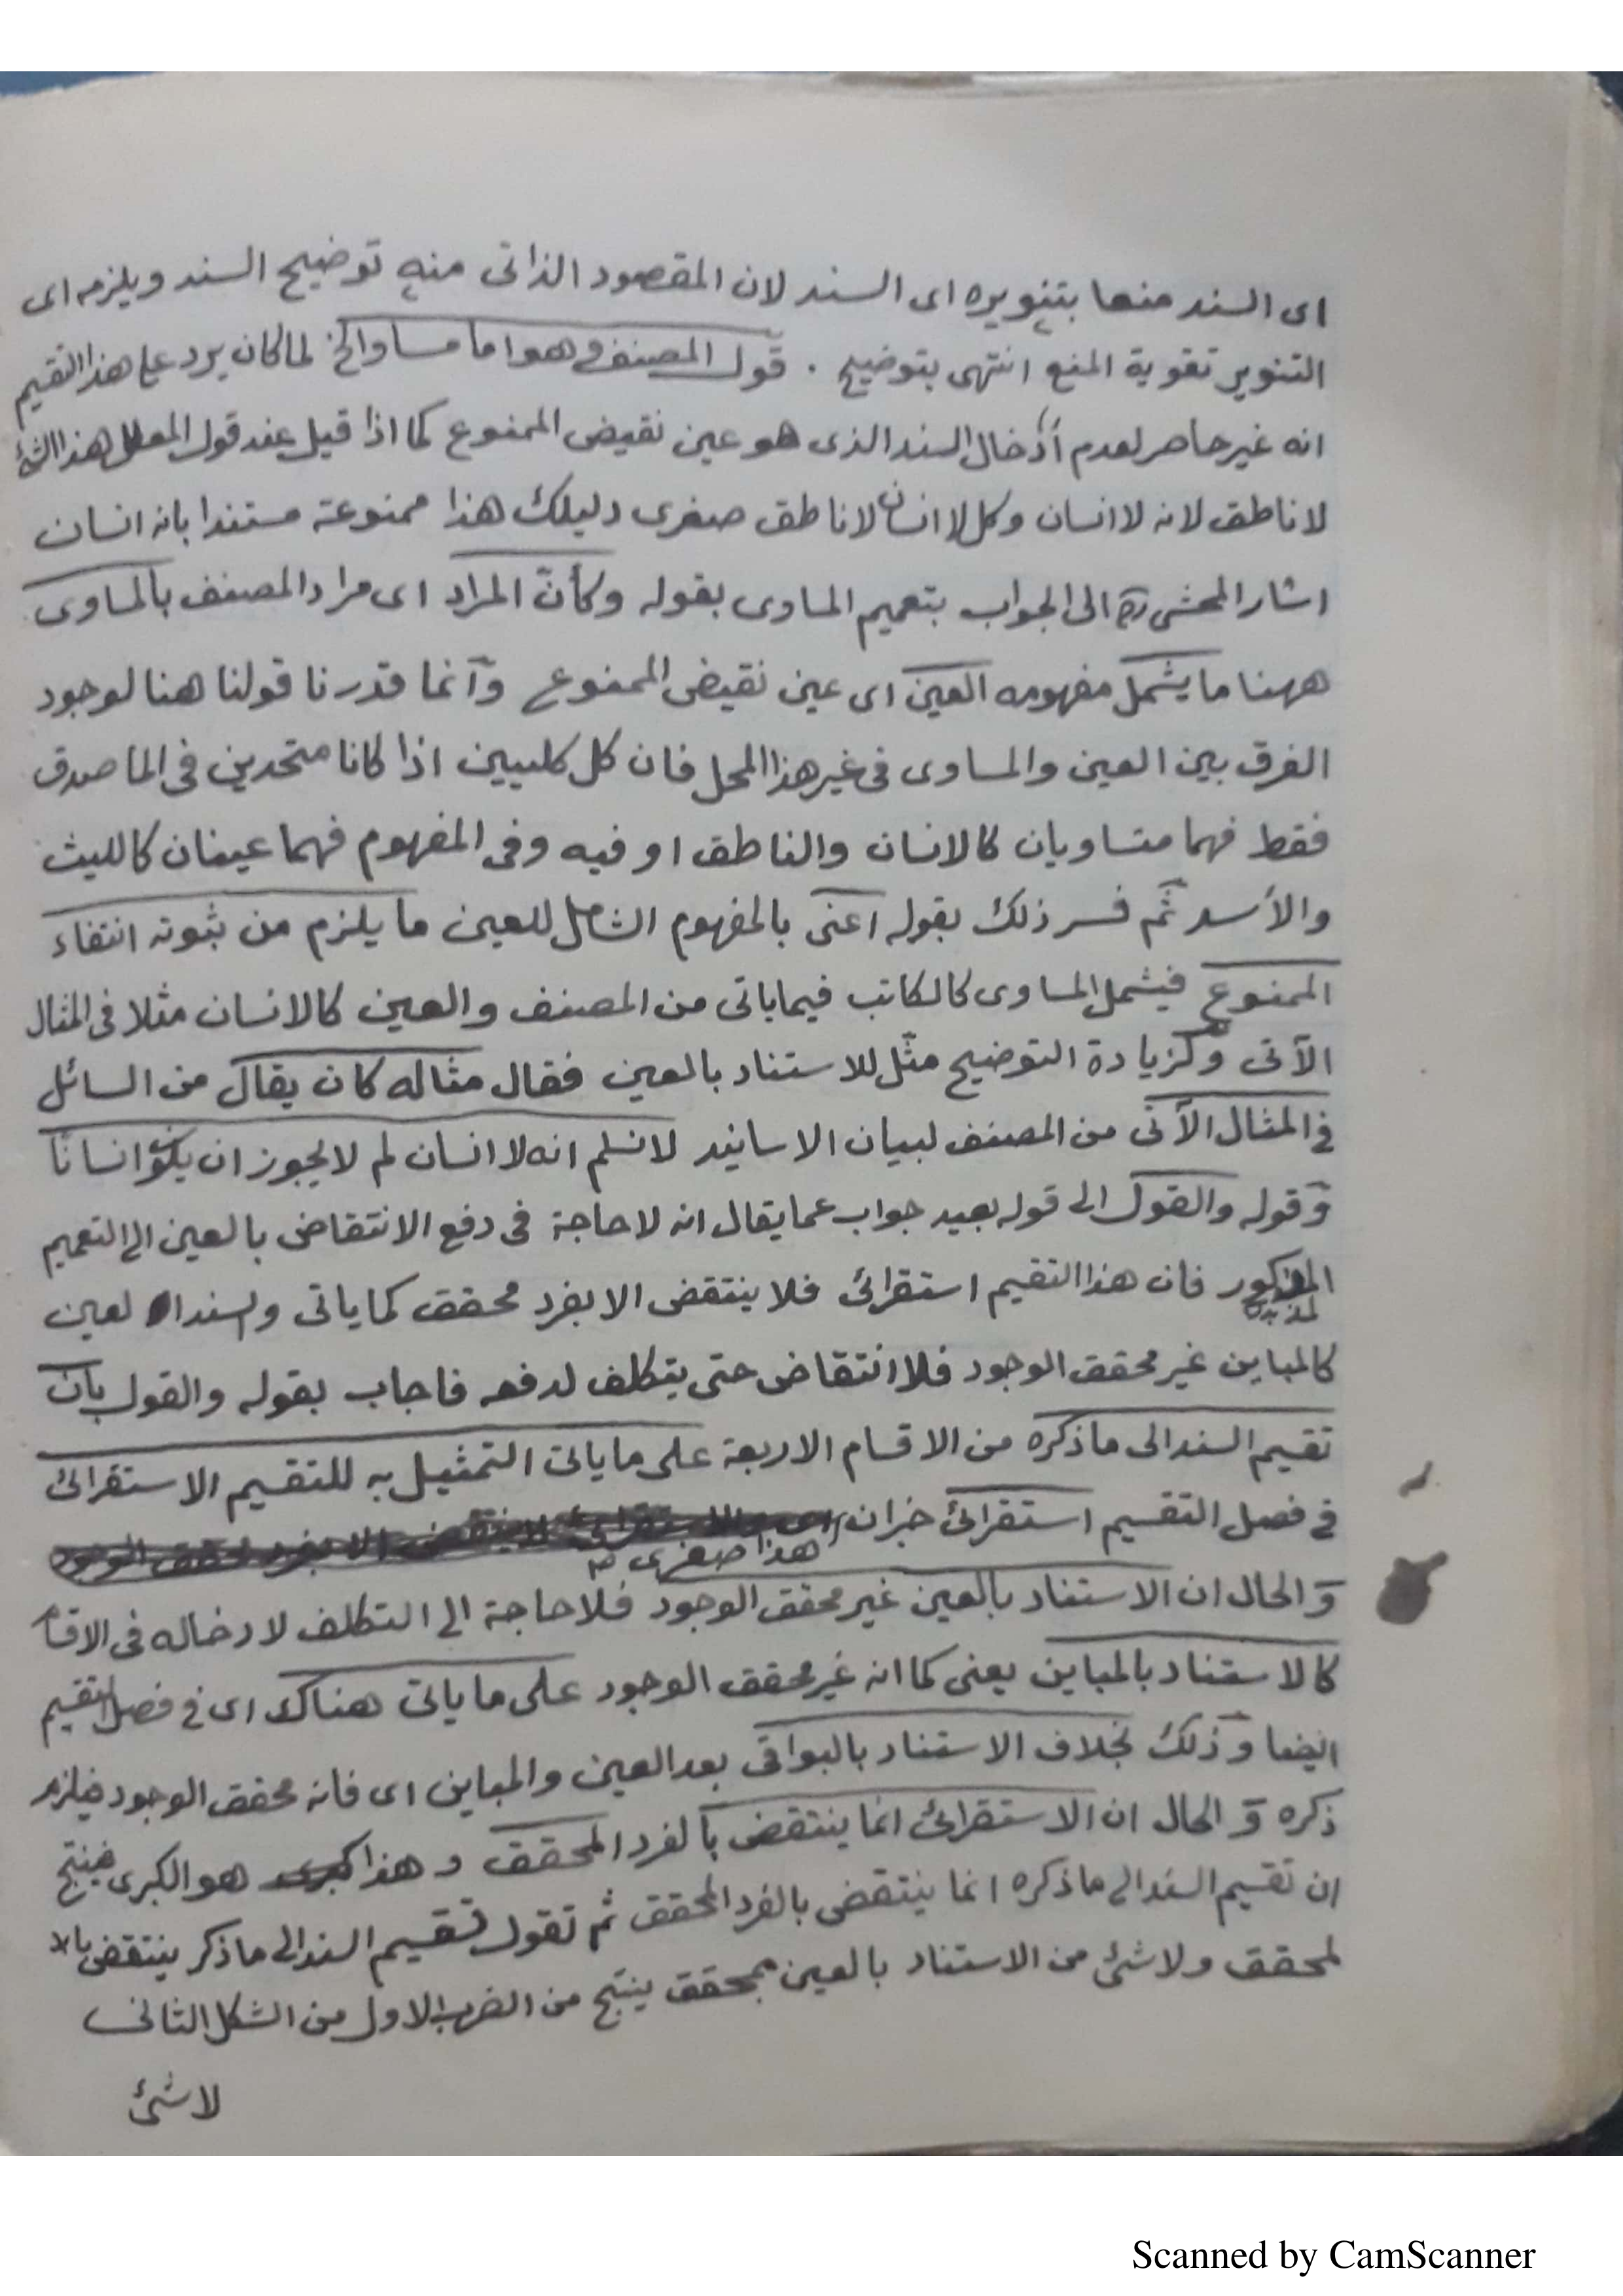 اى السند منها بتنويره اى السند لان المقصود الذاتى منه توضيح السند ويلزمه اى
التنوير تقوية المنع انتهى بتوضيح . قول المصنف وهو اما مساو الخ لما كان يرد على هذا التقسيم
انه غير حاصر لعدم ادخال السند الذى هو عين نقيض الممنوع كما اذا قيل عند قول المعلل هذا الشئ
لا ناطق لانه لا انسان وكل لا انسان لا ناطق صغرى دليلك هذا ممنوعة مستندا بانه انسان
اشار المحشى ره الى الجواب بتعميم المساوى بقوله وكأنّ المراد اى مراد المصنف بالمساوى
ههنا ما يشمل مفهومه العين اى عين نقيض الممنوع وانما قدرنا قولنا هنا لوجود
الفرق بين العين والمساوى فى غير هذا المحل فان كل كليين اذا كانا متحدين فى الماصدق
فقط فهما متساويان كالانسان والناطق او فيه وفى المفهوم فهما عينان كالليث
والأسد ثم فسر ذلك بقوله اعنى بالمفهوم الشامل للعين ما يلزم من ثبوته انتفاء
الممنوع فيشمل المساوى كالكاتب فيما ياتى من المصنف والعين كالانسان مثلا فى المثال
الآتى ولزيادة التوضيح مثّل للاستناد بالعين فقال مثاله كان يقال من السائل
فى المثال الآتى من المصنف لبيان الاسانيد لا نسلم انه لا انسان لم لا يجوز ان يكون انسانا
وقوله والقول الى قوله بعيد جواب عما يقال انه لا حاجة فى دفع الانتقاض بالعين الى التعميم
المذكور فان هذا التقسيم استقرائى فلا ينتقض الا بفرد محقق كما ياتى والسند العين
كالمباين غير محقق الوجود فلا انتقاض حتى يتكلف لدفعه فاجاب بقوله والقول بان
تقسيم السند الى ما ذكره من الاقسام الاربعة على ما ياتى التمثيل به للتقسيم الاستقرائى
فى فصل التقسيم استقرائى خبران
هذا صغرى
و الحال ان الاستناد بالعين غير محقق الوجود فلا حاجة الى التكلف لادخاله فى الاقسام
كالاستناد بالمباين يعنى كما انه غير محقق الوجود على ما ياتى هناك اى فى فصل التقسيم
ايضا وذلك بخلاف الاستناد بالبواقى بعد العين والمباين اى فانه محقق الوجود فيلزم
ذكره و الحال ان الاستقرائى انما ينتقض بالفرد المحقق و هذا هو الكبرى فينتج
ان تقسيم السند الى ما ذكره انما ينتقض بالفرد المحقق ثم تقول تقسيم السند الى ما ذكر ينتقض
لمحقق ولا شئ من الاستناد بالعين بمحقق ينتج من الضرب الاول من الشكل الثانى
لا شئ
Scanned by CamScanner